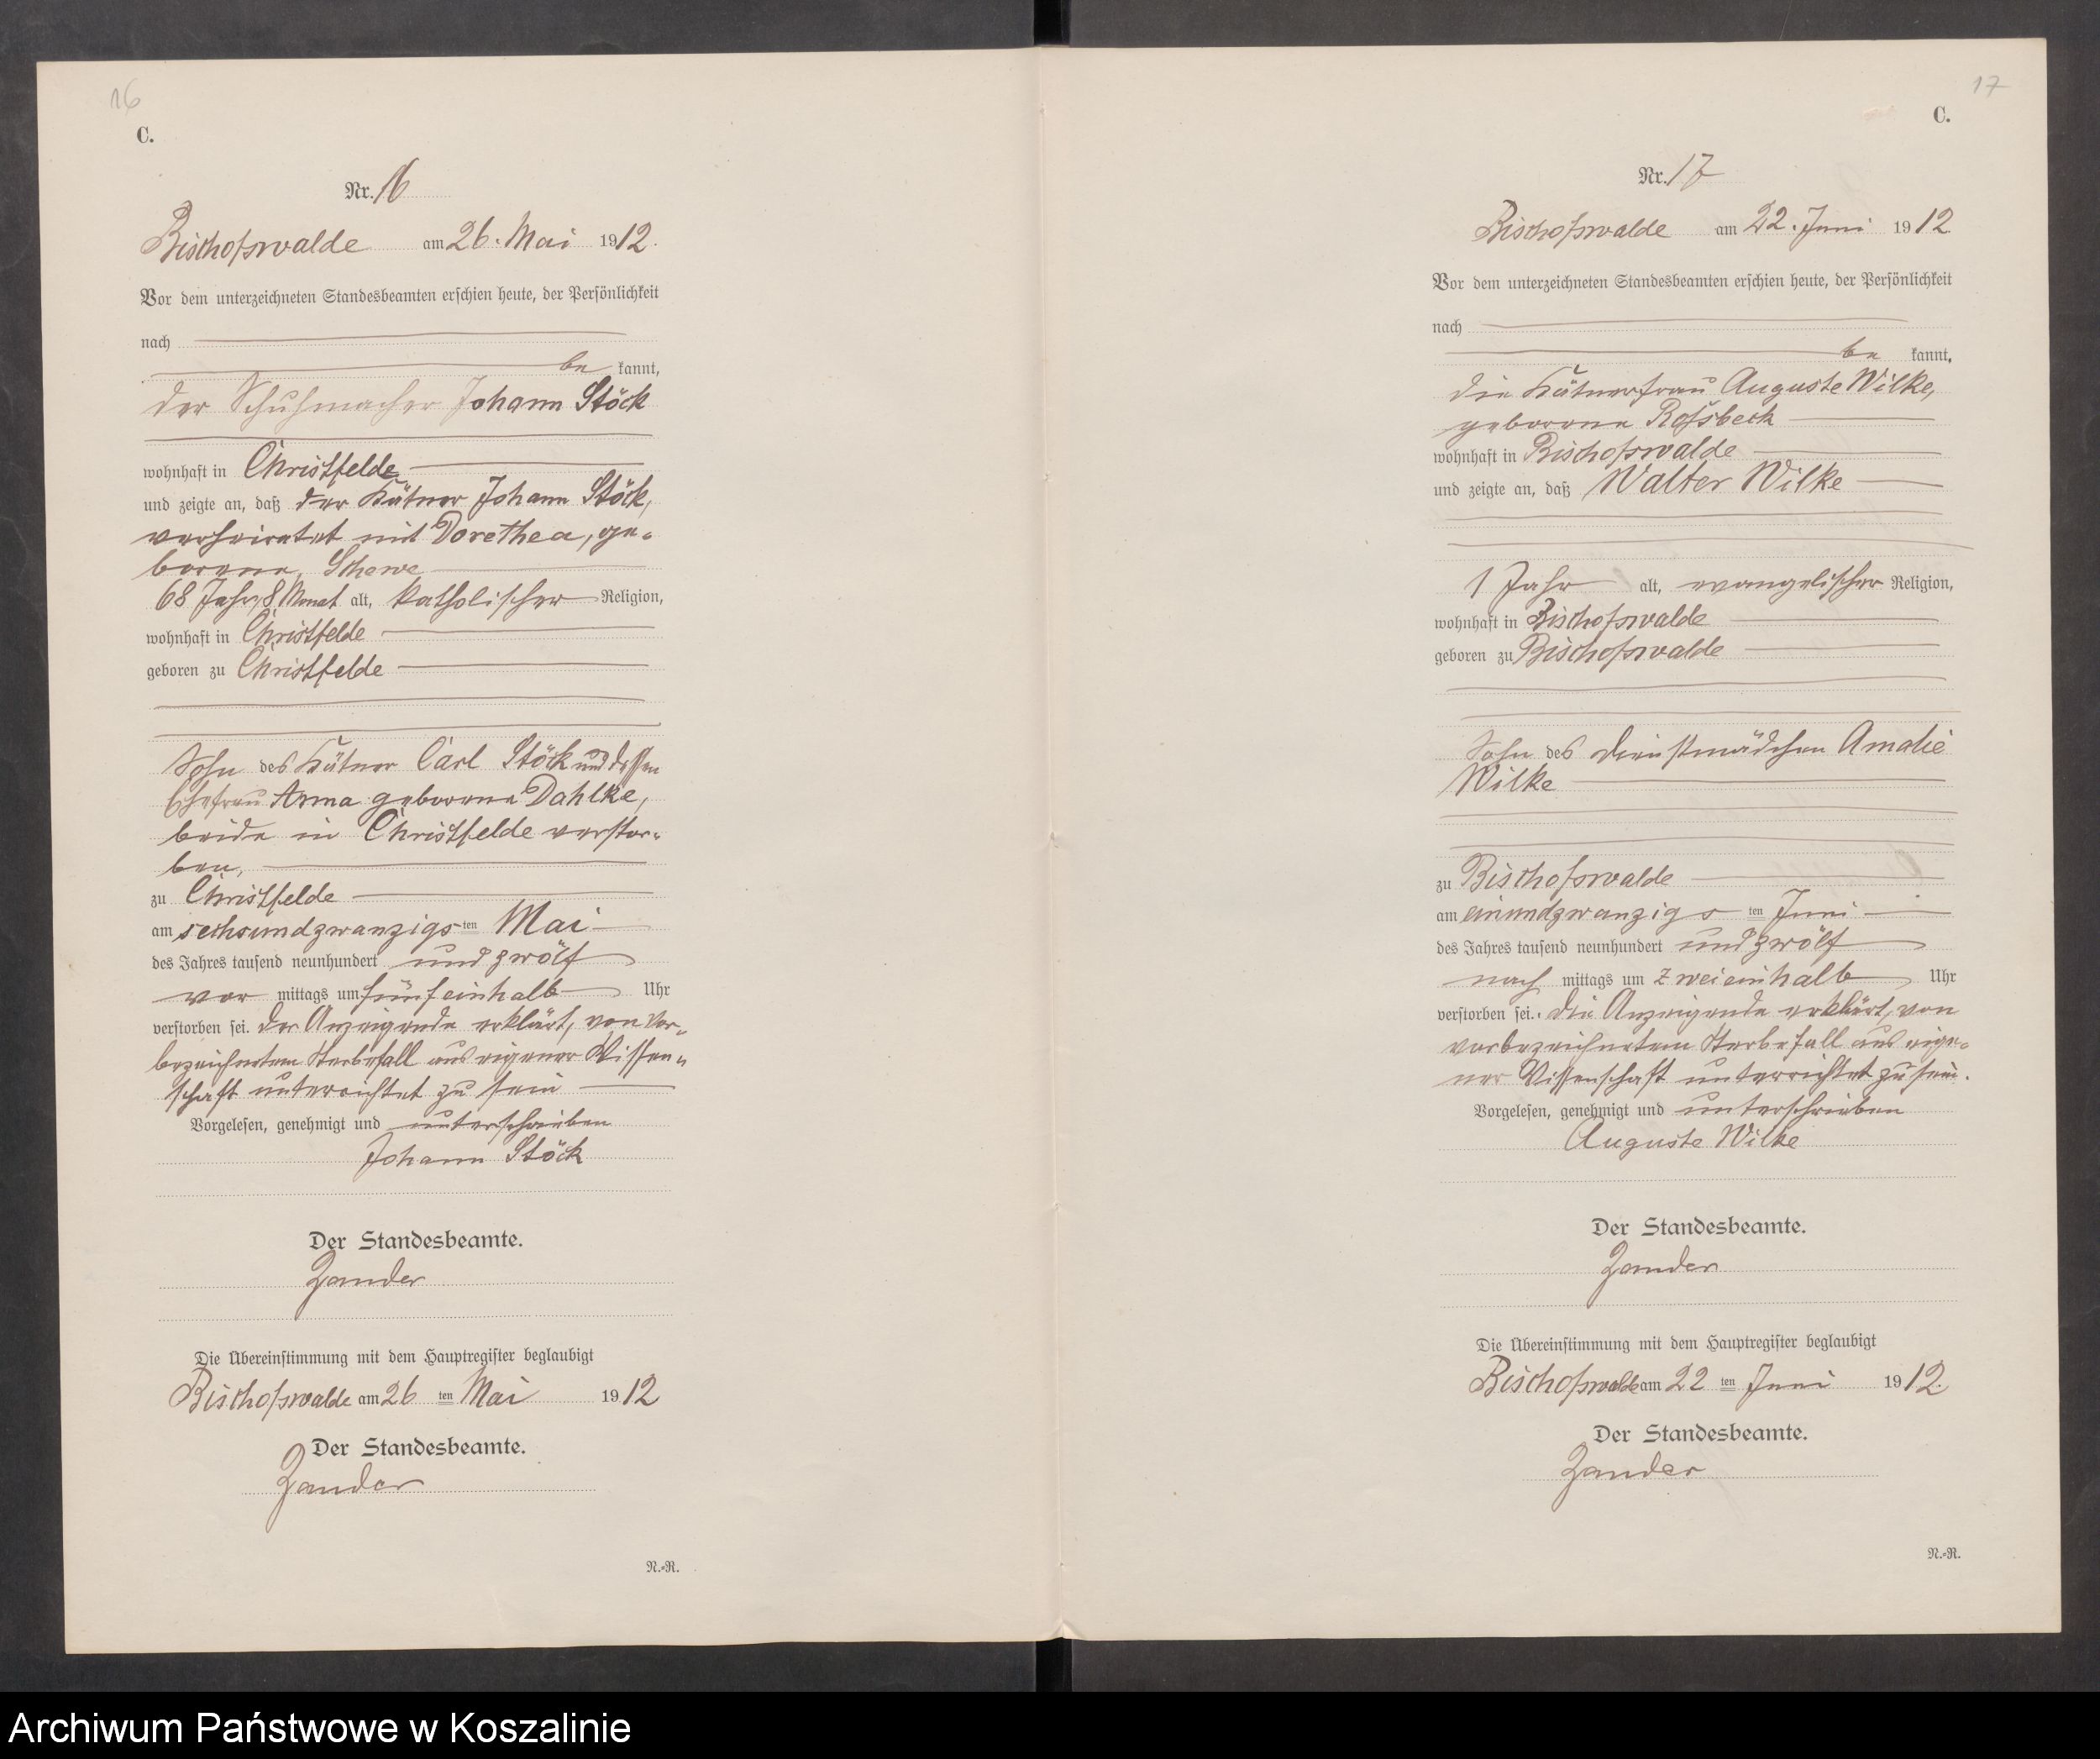 16
C.
Nr. 16
Bischofswalde am 26. Mai 1912.
Vor dem unterzeichneten Standesbeamten erschien heute, der Persönlichkeit
nach
be kannt,
der Schuhmacher Johann Stöck
wohnhaft in Christfelde
und zeigte an, daß der Kätner Johann Stöck,
verheiratet mit Dorethea, ge-
borene, Schewe
68 Jahr, 8 Monat alt, katholischer Religion,
wohnhaft in Christfelde
geboren zu Christfelde
Sohn des Kätner Carl Stöck und dessen
Ehefrau Anna geborene Dahlke,
beide in Christfelde verstor-
ben,
zu Christfelde
am sechsundzwanzigs ten Mai
des Jahres tausend neunhundert und zwölf
vor mittags um fünfeinhalb Uhr
verstorben sei. Der Anzeigende erklärt, von vor-
bezeichnetem Sterbefall aus eigener Wissen-
schaft unterrichtet zu sein
Vorgelesen, genehmigt und unterschrieben
Johann Stöck
Der Standesbeamte.
Zander
Die Übereinstimmung mit dem Hauptregister beglaubigt
Bischofswalde am 26 ten Mai 1912
Der Standesbeamte.
Zander
N.=R.
17
C.
Nr. 17
Bischofswalde am 22. Juni 1912
Vor dem unterzeichneten Standesbeamten erschien heute, der Persönlichkeit
nach
be kannt,
die Kätnerfrau Auguste Wilke,
geborene Roßbeck
wohnhaft in Bischofswalde
und zeigte an, daß Walter Wilke
1 Jahr alt, evangelischer Religion,
wohnhaft in Bischofswalde
geboren zu Bischofswalde
Sohn des Dienstmädchen Amalie
Wilke
zu Bischofswalde
am einundzwanzigs ten Juni
des Jahres tausend neunhundert und zwölf
nach mittags um zweieinhalb Uhr
verstorben sei. Die Anzeigende erklärt, von
vorbezeichnetem Sterbefall aus eige-
ner Wissenschaft unterrichtet zu sein.
Vorgelesen, genehmigt und unterschrieben
Auguste Wilke
Der Standesbeamte.
Zander
Die Übereinstimmung mit dem Hauptregister beglaubigt
Bischofswalde am 22 ten Juni 1912.
Der Standesbeamte.
Zander
N.=R.
Archiwum Państwowe w Koszalinie